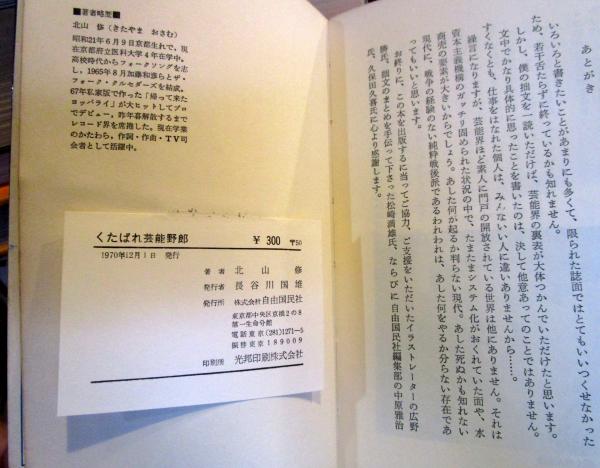 ■著者略歴■
北山　修（きたやま　おさむ）
昭和21年6月9日京都生れで，現
在京都府立医科大学4年在学中。
高校時代からフォークソングを志
し，1965年8月加藤和彦らとザ・
フォーク・クルセダーズを結成。
67年私家版で作った「帰って来た
ヨッパライ」が大ヒットしてプロ
でデビュー。昨年暮解散するまで
レコード界を席捲した。現在学業
のかたわら，作詞・作曲・TV司
会者として活躍中。
くたばれ芸能野郎
￥300　〒50
1970年12月1日　発行
著者　北山　修
発行者　長谷川国雄
発行所　株式会社自由国民社
東京都中央区京橋2の8
第一生命分館
電話東京（281）1271―5
振替東京189009
印刷所　光邦印刷株式会社
あとがき
いろいろと書きたいことがあまりにも多くて、限られた誌面ではとてもいいつくせなかった
ため、若干舌たらずに終っているかも知れません。
しかし、僕の拙文を一読いただけば、芸能界の裏表が大体つかんでいただけたと思います。
文中でかなり具体的に思ったことを書いたのは、決して他意あってのことではありません。
すくなくとも、仕事をはなれた個人は、みんないい人に違いありませんから……。
繰言になりますが、芸能界ほど素人に門戸の開放されている世界は他にありません。それは
資本主義機構のガッチリ固められた状況の中で、たまたまシステム化がおくれていた面や、水
商売の要素が大きいからでしょう。あした何が起るか判らない現代、あした死ぬかも知れない
現代に、戦争の経験のない純粋戦後派であるわれわれは、あした何をやるか分らない存在であ
ってもいいと思います。
お終りに、この本を出版するに当ってご協力、ご支援をいただいたイラストレーターの広野
勝氏、拙文のまとめを手伝って下さった松崎満雄氏、ならびに自由国民社編集部の中原雅治
氏、久保田久喜氏に心より感謝します。